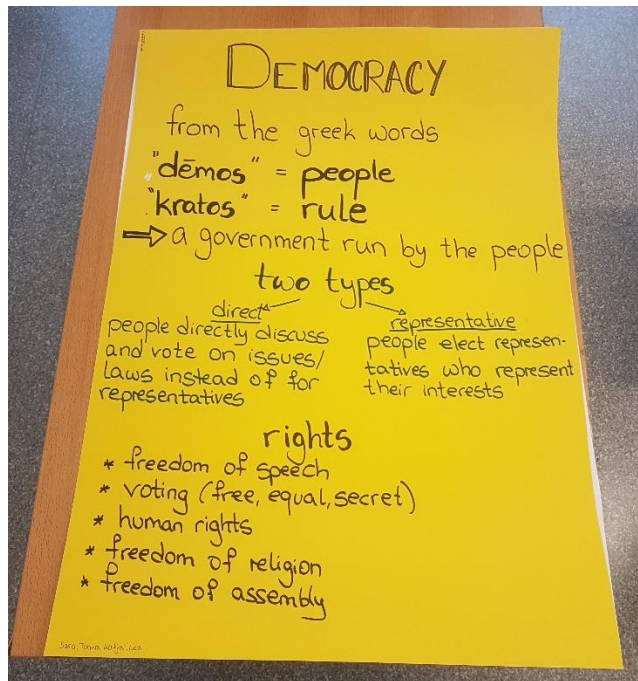 DEMOCRACY
from the greek words
"dēmos" = people
"kratos" = rule
⇒ a government run by the people
two types
direct
people directly discuss
and vote on issues/
laws instead of for
representatives
representative
people elect represen-
tatives who represent
their interests
rights
* freedom of speech
* voting (free, equal, secret)
* human rights
* freedom of religion
* freedom of assembly
Sara,